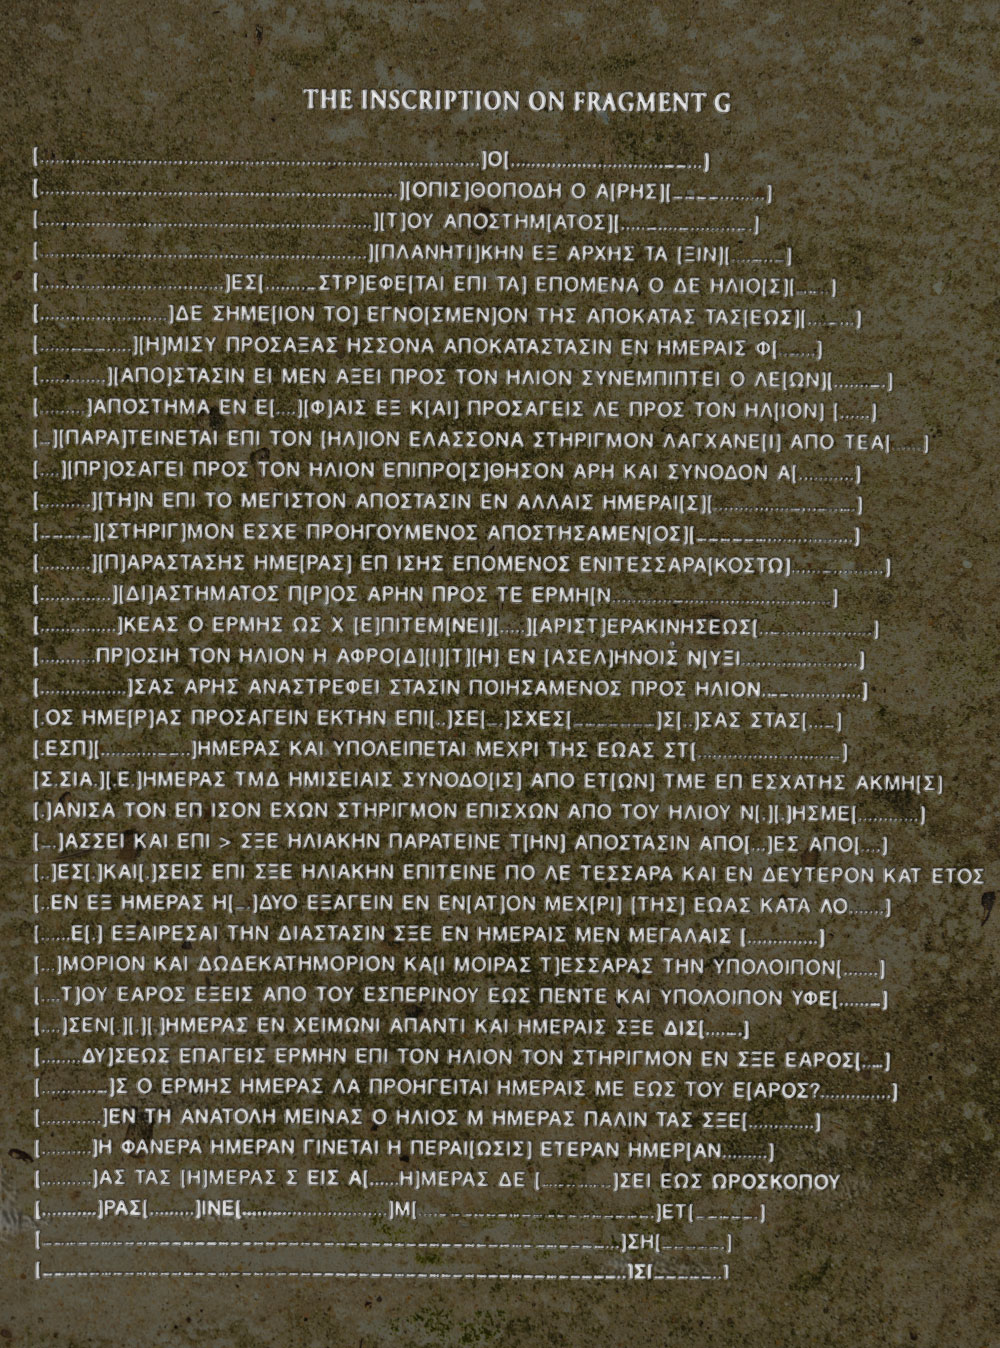 THE INSCRIPTION ON FRAGMENT G
[..............................]Ο[....................]
[..............................][ΟΠΙΣ]ΘΟΠΟΔΗ Ο Α[ΡΗΣ][..............]
[..............................][Τ]ΟΥ ΑΠΟΣΤΗΜ[ΑΤΟΣ][....................]
[..............................][ΠΛΑΝΗΤΙ]ΚΗΝ ΕΞ ΑΡΧΗΣ ΤΑ [ΞΙΝ][.........]
[..............................]ΕΣ[.........ΣΤΡ]ΕΦΕ[ΤΑΙ ΕΠΙ ΤΑ] ΕΠΟΜΕΝΑ Ο ΔΕ ΗΛΙΟ[Σ][......]
[.....................]ΔΕ ΣΗΜΕ[ΙΟΝ ΤΟ] ΕΓΝΟ[ΣΜΕΝ]ΟΝ ΤΗΣ ΑΠΟΚΑΤΑΣ ΤΑΣ[ΕΩΣ][........]
[...............][Η]ΜΙΣΥ ΠΡΟΣΑΞΑΣ ΗΣΣΟΝΑ ΑΠΟΚΑΤΑΣΤΑΣΙΝ ΕΝ ΗΜΕΡΑΙΣ Φ[.......]
[...........][ΑΠΟ]ΣΤΑΣΙΝ ΕΙ ΜΕΝ ΑΞΕΙ ΠΡΟΣ ΤΟΝ ΗΛΙΟΝ ΣΥΝΕΜΠΙΠΤΕΙ Ο ΛΕ[ΩΝ][.........]
[........]ΑΠΟΣΤΗΜΑ ΕΝ Ε[....][Φ]ΑΙΣ ΕΞ Κ[ΑΙ] ΠΡΟΣΑΓΕΙΣ ΛΕ ΠΡΟΣ ΤΟΝ ΗΛ[ΙΟΝ] [......]
[...][ΠΑΡΑ]ΤΕΙΝΕΤΑΙ ΕΠΙ ΤΟΝ [ΗΛ]ΙΟΝ ΕΛΑΣΣΟΝΑ ΣΤΗΡΙΓΜΟΝ ΛΑΓΧΑΝΕ[Ι] ΑΠΟ ΤΕΑ[......]
[....][ΠΡ]ΟΣΑΓΕΙ ΠΡΟΣ ΤΟΝ ΗΛΙΟΝ ΕΠΙΠΡΟ[Σ]ΘΗΣΟΝ ΑΡΗ ΚΑΙ ΣΥΝΟΔΟΝ Α[..........]
[.........][ΤΗ]Ν ΕΠΙ ΤΟ ΜΕΓΙΣΤΟΝ ΑΠΟΣΤΑΣΙΝ ΕΝ ΑΛΛΑΙΣ ΗΜΕΡΑΙ[Σ][.......................]
[.........][ΣΤΗΡΙΓ]ΜΟΝ ΕΣΧΕ ΠΡΟΗΓΟΥΜΕΝΟΣ ΑΠΟΣΤΗΣΑΜΕΝ[ΟΣ][.........................]
[.........][Π]ΑΡΑΣΤΑΣΗΣ ΗΜΕ[ΡΑΣ] ΕΠ ΙΣΗΣ ΕΠΟΜΕΝΟΣ ΕΝΙΤΕΣΣΑΡΑ[ΚΟΣΤΩ]................]
[.............][ΔΙ]ΑΣΤΗΜΑΤΟΣ Π[Ρ]ΟΣ ΑΡΗΝ ΠΡΟΣ ΤΕ ΕΡΜΗ[Ν...................................]
[..............]ΚΕΑΣ Ο ΕΡΜΗΣ ΩΣ Χ [Ε]ΠΙΤΕΜ[ΝΕΙ][.....][ΑΡΙΣΤ]ΕΡΑΚΙΝΗΣΕΩΣ[..................]
[..........ΠΡ]ΟΣΙΗ ΤΟΝ ΗΛΙΟΝ Η ΑΦΡΟ[Δ][Ι][Τ][Η] ΕΝ [ΑΣΕΛ]ΗΝΟΙΣ Ν[ΥΞΙ...................]
[................]ΣΑΣ ΑΡΗΣ ΑΝΑΣΤΡΕΦΕΙ ΣΤΑΣΙΝ ΠΟΙΗΣΑΜΕΝΟΣ ΠΡΟΣ ΗΛΙΟΝ.................]
[.ΟΣ ΗΜΕ[Ρ]ΑΣ ΠΡΟΣΑΓΕΙΝ ΕΚΤΗΝ ΕΠΙ[..]ΣΕ[...]ΣΧΕΣ[..............]Σ[..]ΣΑΣ ΣΤΑΣ[.....]
[.ΕΣΠ][...............]ΗΜΕΡΑΣ ΚΑΙ ΥΠΟΛΕΙΠΕΤΑΙ ΜΕΧΡΙ ΤΗΣ ΕΩΑΣ ΣΤ[.......................]
[Σ.ΣΙΑ.][.Ε.]ΗΜΕΡΑΣ ΤΜΔ ΗΜΙΣΕΙΑΙΣ ΣΥΝΟΔΟ[ΙΣ] ΑΠΟ ΕΤ[ΩΝ] ΤΜΕ ΕΠ ΕΣΧΑΤΗΣ ΑΚΜΗ[Σ]
[.]ΑΝΙΣΑ ΤΟΝ ΕΠ ΙΣΟΝ ΕΧΩΝ ΣΤΗΡΙΓΜΟΝ ΕΠΙΣΧΩΝ ΑΠΟ ΤΟΥ ΗΛΙΟΥ Ν[.][.]ΗΣΜΕ[..........]
[....]ΑΣΣΕΙ ΚΑΙ ΕΠΙ > ΣΞΕ ΗΛΙΑΚΗΝ ΠΑΡΑΤΕΙΝΕ Τ[ΗΝ] ΑΠΟΣΤΑΣΙΝ ΑΠΟ[...]ΕΣ ΑΠΟ[....]
[..]ΕΣ[.]ΚΑΙ[.]ΣΕΙΣ ΕΠΙ ΣΞΕ ΗΛΙΑΚΗΝ ΕΠΙΤΕΙΝΕ ΠΟ ΛΕ ΤΕΣΣΑΡΑ ΚΑΙ ΕΝ ΔΕΥΤΕΡΟΝ ΚΑΤ ΕΤΟΣ
[..ΕΝ ΕΞ ΗΜΕΡΑΣ Η[...]ΔΥΟ ΕΞΑΓΕΙΝ ΕΝ ΕΝ[ΑΤ]ΟΝ ΜΕΧ[ΡΙ] [ΤΗΣ] ΕΩΑΣ ΚΑΤΑ ΛΟ.......]
[......Ε[.] ΕΞΑΙΡΕΣΑΙ ΤΗΝ ΔΙΑΣΤΑΣΙΝ ΣΞΕ ΕΝ ΗΜΕΡΑΙΣ ΜΕΝ ΜΕΓΑΛΑΙΣ [.............]
[...]ΜΟΡΙΟΝ ΚΑΙ ΔΩΔΕΚΑΤΗΜΟΡΙΟΝ ΚΑ[Ι ΜΟΙΡΑΣ Τ]ΕΣΣΑΡΑΣ ΤΗΝ ΥΠΟΛΟΙΠΟΝ[.......]
[....Τ]ΟΥ ΕΑΡΟΣ ΕΞΕΙΣ ΑΠΟ ΤΟΥ ΕΣΠΕΡΙΝΟΥ ΕΩΣ ΠΕΝΤΕ ΚΑΙ ΥΠΟΛΟΙΠΟΝ ΥΦΕ[........]
[....]ΣΕΝ[.][.][.]ΗΜΕΡΑΣ ΕΝ ΧΕΙΜΩΝΙ ΑΠΑΝΤΙ ΚΑΙ ΗΜΕΡΑΙΣ ΣΞΕ ΔΙΣ[.......]
[........ΔΥ]ΣΕΩΣ ΕΠΑΓΕΙΣ ΕΡΜΗΝ ΕΠΙ ΤΟΝ ΗΛΙΟΝ ΤΟΝ ΣΤΗΡΙΓΜΟΝ ΕΝ ΣΞΕ ΕΑΡΟΣ[.....]
[............]Σ Ο ΕΡΜΗΣ ΗΜΕΡΑΣ ΛΑ ΠΡΟΗΓΕΙΤΑΙ ΗΜΕΡΑΙΣ ΜΕ ΕΩΣ ΤΟΥ Ε[ΑΡΟΣ?.............]
[...........]ΕΝ ΤΗ ΑΝΑΤΟΛΗ ΜΕΙΝΑΣ Ο ΗΛΙΟΣ Μ ΗΜΕΡΑΣ ΠΑΛΙΝ ΤΑΣ ΣΞΕ[............]
[.........]Η ΦΑΝΕΡΑ ΗΜΕΡΑΝ ΓΙΝΕΤΑΙ Η ΠΕΡΑΙ[ΩΣΙΣ] ΕΤΕΡΑΝ ΗΜΕΡ[ΑΝ........]
[.........]ΑΣ ΤΑΣ [Η]ΜΕΡΑΣ Σ ΕΙΣ Α[......Η]ΜΕΡΑΣ ΔΕ [............]ΣΕΙ ΕΩΣ ΩΡΟΣΚΟΠΟΥ
[..........]ΡΑΣ[.........]ΙΝΕ[.........................]Μ[..............................]ΕΤ[...........]
[..............................]ΣΗ[...........]
[..............................]Σ[...........]